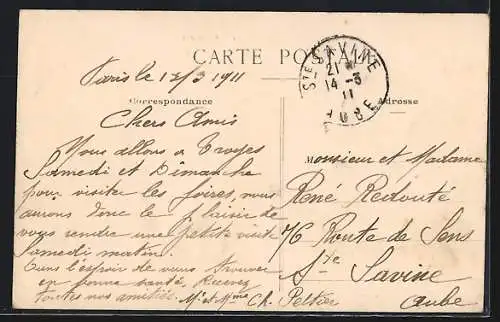 CARTE POSTALE
Paris le 12/3 1911
Correspondance
Chers Amis
Nous allons a Troyes
Samedi et Dimanche
pour visiter les foires, nous
aurons donc le plaisir de
vous rendre une petite visite
Samedi matin.
Dans l'espoir de vous trouver
en bonne santé, Recevez
toutes nos amitiés. Mr et Mme Ch. Peltier
STE SAVINE
21
14 - 3
11
AUBE
Adresse
Monsieur et Madame
René Redouté
76 Route de Sens
Ste Savine
Aube